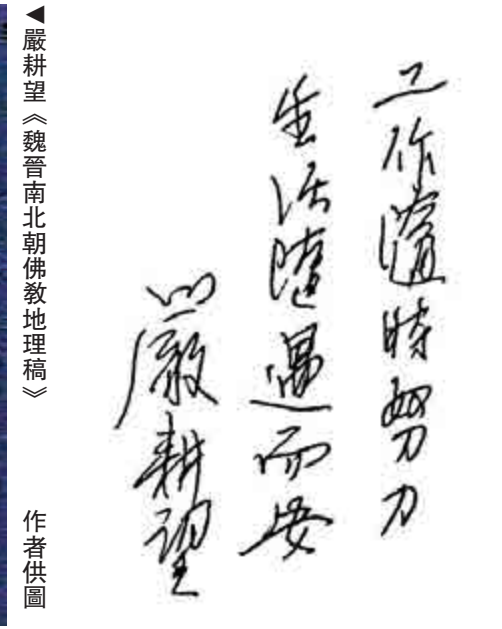 工作隨時努力
生活隨遇而安
嚴耕望
◀嚴耕望《魏晉南北朝佛教地理稿》 作者供圖